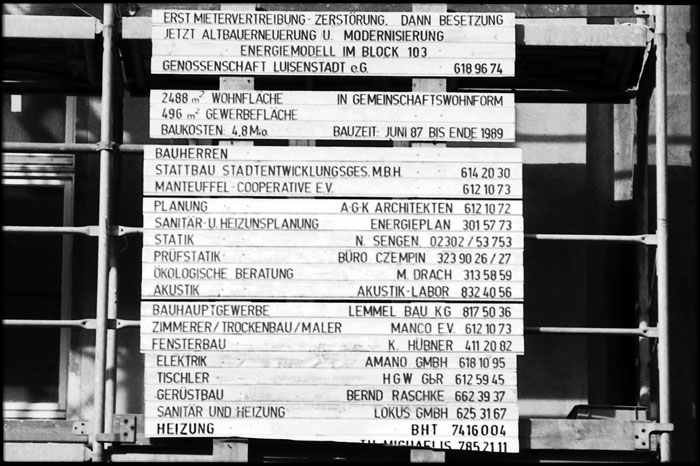 ERST MIETERVERTREIBUNG - ZERSTÖRUNG, DANN BESETZUNG
JETZT ALTBAUERNEUERUNG U. MODERNISIERUNG
ENERGIEMODELL IM BLOCK 103
GENOSSENSCHAFT LUISENSTADT e.G. 618 96 74
2488 m² WOHNFLÄCHE IN GEMEINSCHAFTSWOHNFORM
496 m² GEWERBEFLÄCHE
BAUKOSTEN: 4,8 Mio. BAUZEIT: JUNI 87 BIS ENDE 1989
BAUHERREN
STATTBAU STADTENTWICKLUNGSGES. M.B.H. 614 20 30
MANTEUFFEL - COOPERATIVE E.V. 612 10 73
PLANUNG A·G·K ARCHITEKTEN 612 10 72
SANITÄR- U. HEIZUNSPLANUNG ENERGIEPLAN 301 57 73
STATIK N. SENGEN 02302 / 53 753
PRÜFSTATIK BÜRO CZEMPIN 323 90 26 / 27
ÖKOLOGISCHE BERATUNG M. DRACH 313 58 59
AKUSTIK AKUSTIK-LABOR 832 40 56
BAUHAUPTGEWERBE LEMMEL BAU KG 817 50 36
ZIMMERER / TROCKENBAU / MALER MANCO E.V. 612 10 73
FENSTERBAU K. HÜBNER 411 20 82
ELEKTRIK AMANO GMBH 618 10 95
TISCHLER HGW GbR 612 59 45
GERÜSTBAU BERND RASCHKE 662 39 37
SANITÄR UND HEIZUNG LOKUS GMBH 625 31 67
HEIZUNG BHT 7416004
TH. MICHAELIS 785 21 11